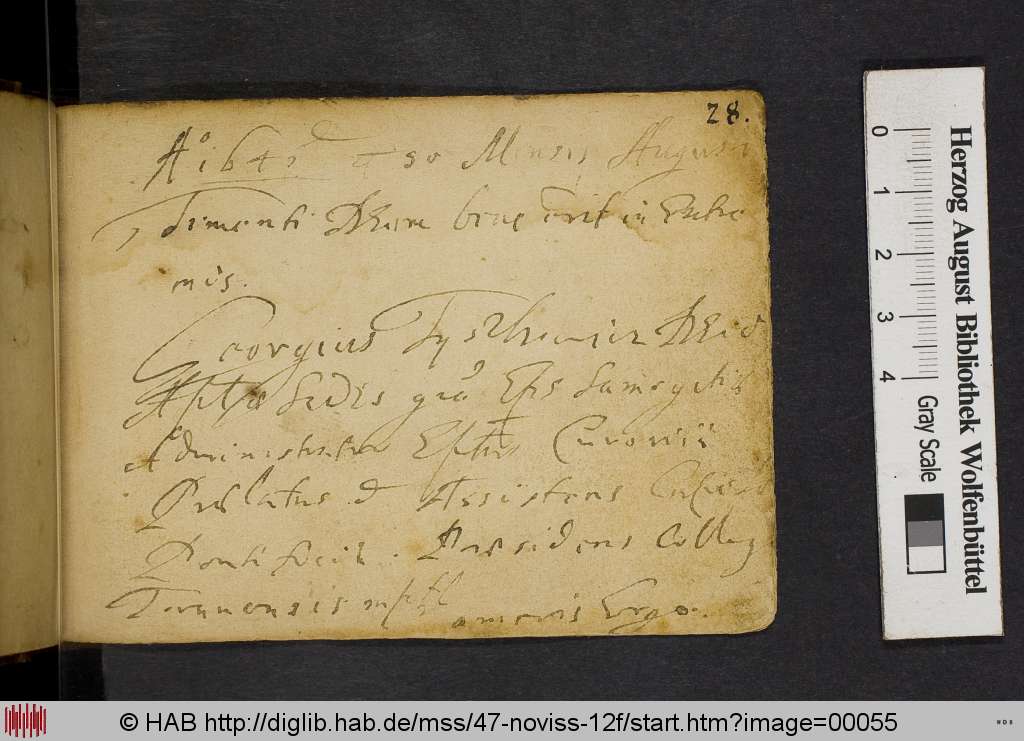 28.
Aº 1645 d 30 Mensis Augusti
Timenti DEum bene erit in Extre
mis.
Georgius Tyszkiewicz DEi &
Aplicæ Sedis grã Eps Samogitiæ
Administrator Epatus Curoniæ
Prælatus & Assistens
Pontificiæ. Præsidens Colloq
Torunensis mpp
amoris Ergo.
0 1 2 3 4
Gray Scale
Herzog August Bibliothek Wolfenbüttel
© HAB http://diglib.hab.de/mss/47-noviss-12f/start.htm?image=00055